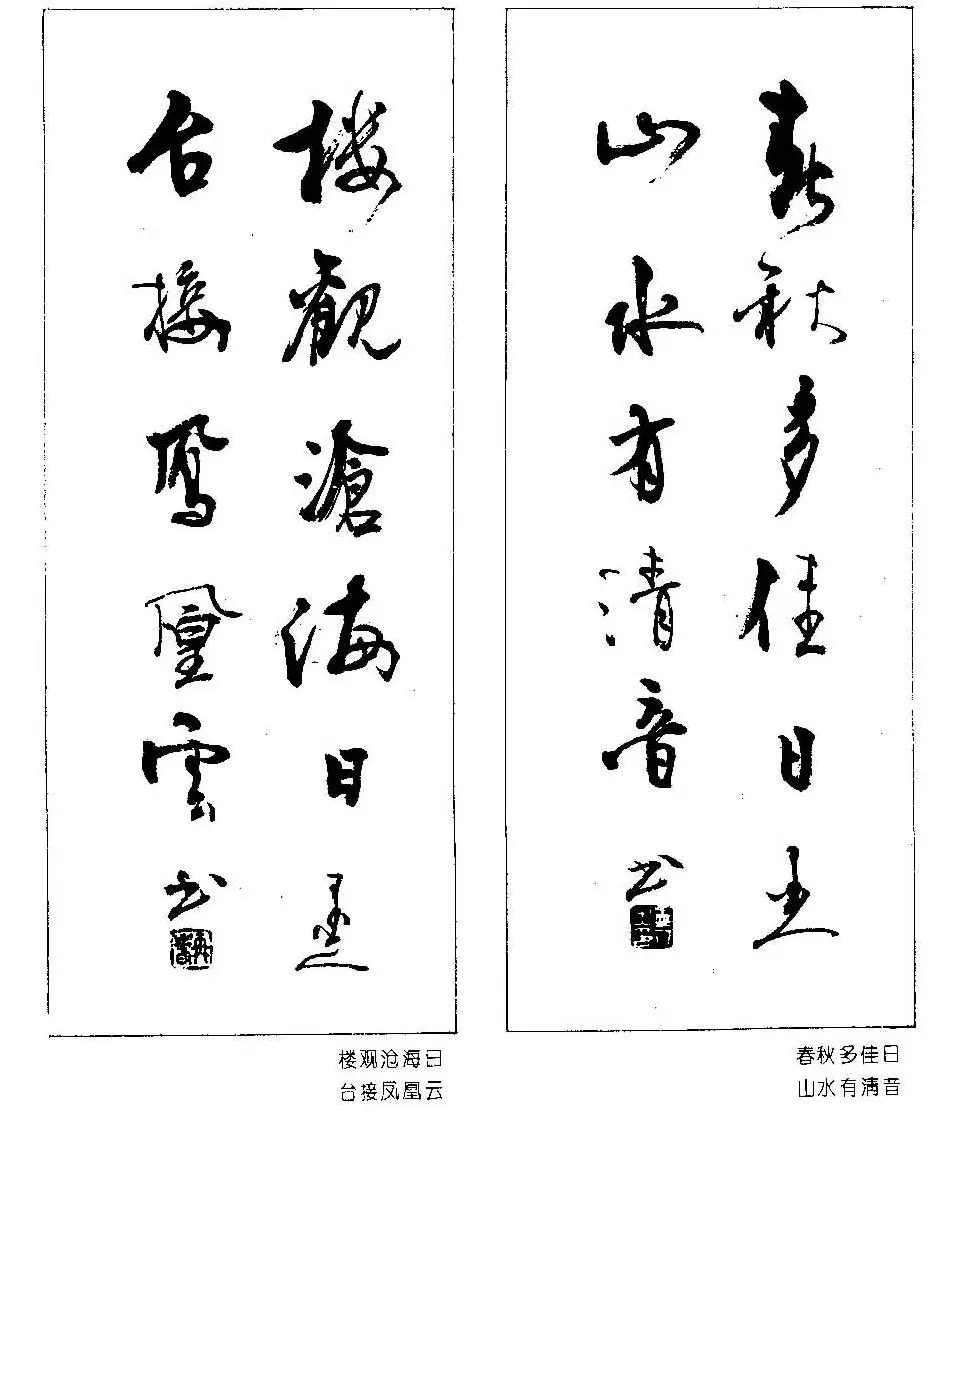 春秋多佳日
山水有清音
书
楼觀滄海日
台接鳳凰雲
书
春秋多佳日
山水有清音
楼观沧海日
台接凤凰云